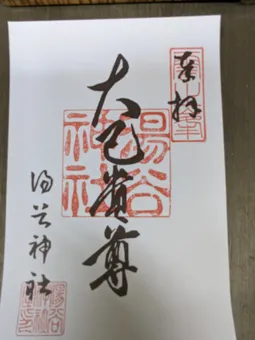 奉拝
大己貴尊
湯谷神社
湯谷神社